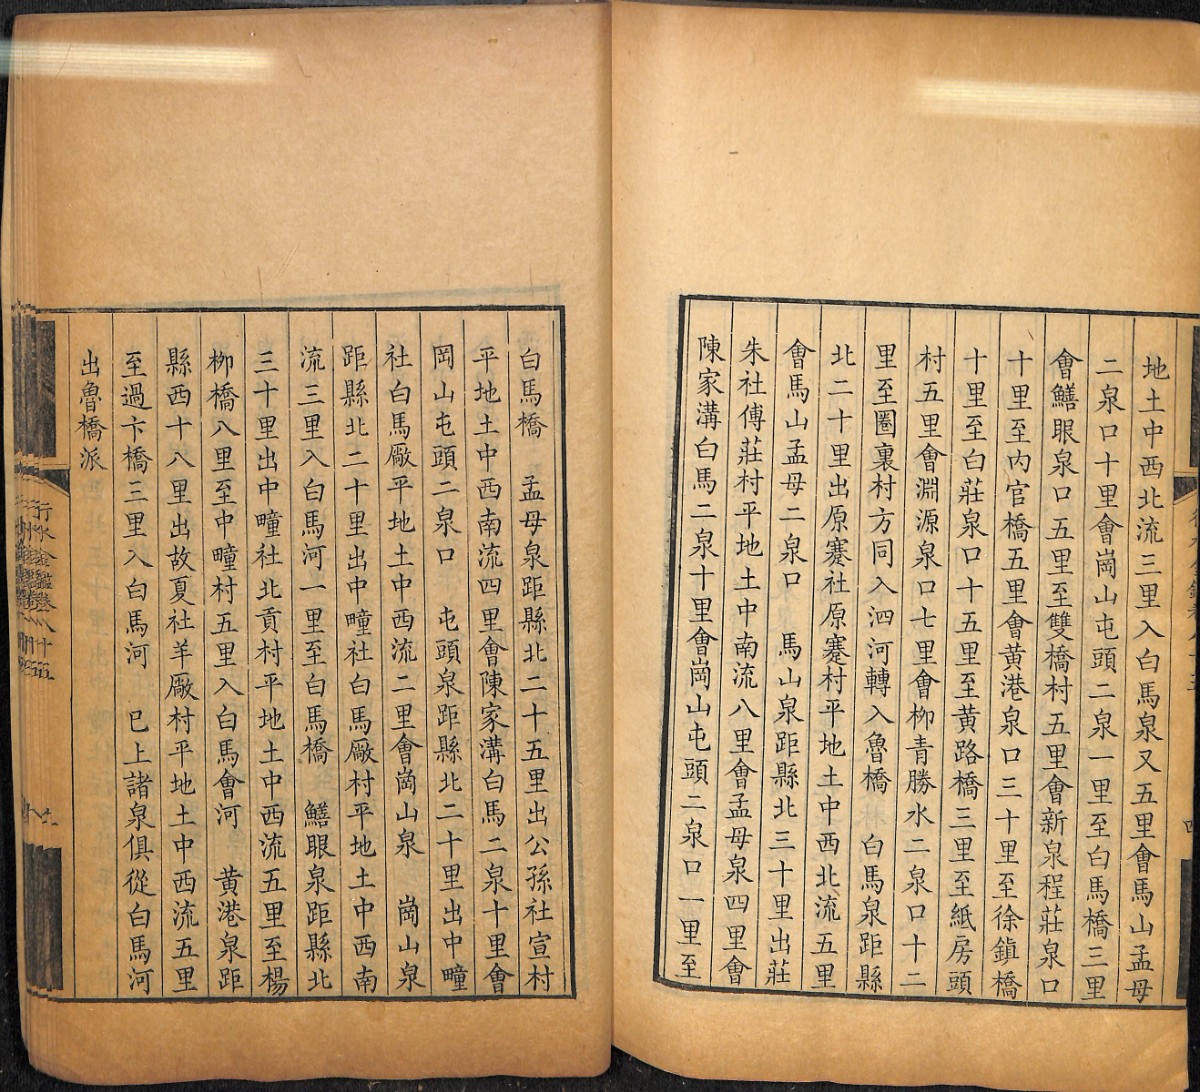 地土中西北流三里入白馬泉又五里會馬山孟母
二泉口十里會崗山屯頭二泉一里至白馬橋三里
會鱔眼泉口五里至雙橋村五里會新泉程莊泉口
十里至內官橋五里會黄港泉口三十里至徐鎮橋
十里至白莊泉口十五里至黄路橋三里至紙房頭
村五里會淵源泉口七里會柳青勝水二泉口十二
里至圈裏村方同入泗河轉入魯橋　白馬泉距縣
北二十里出原蹇社原蹇村平地土中西北流五里
會馬山孟母二泉口　馬山泉距縣北三十里出莊
朱社傅莊村平地土中南流八里會孟母泉四里會
陳家溝白馬二泉十里會崗山屯頭二泉口一里至
白馬橋　孟母泉距縣北二十五里出公孫社宣村
平地土中西南流四里會陳家溝白馬二泉十里會
岡山屯頭二泉口　屯頭泉距縣北二十里出中疃
社白馬厰平地土中西流二里會崗山泉　崗山泉
距縣北二十里出中疃社白馬厰村平地土中西南
流三里入白馬河一里至白馬橋　鱔眼泉距縣北
三十里出中疃社北貢村平地土中西流五里至楊
柳橋八里至中疃村五里入白馬會河　黄港泉距
縣西十八里出故夏社羊厰村平地土中西流五里
至過卞橋三里入白馬河　已上諸泉俱從白馬河
出魯橋派
行水金鑑卷八十五